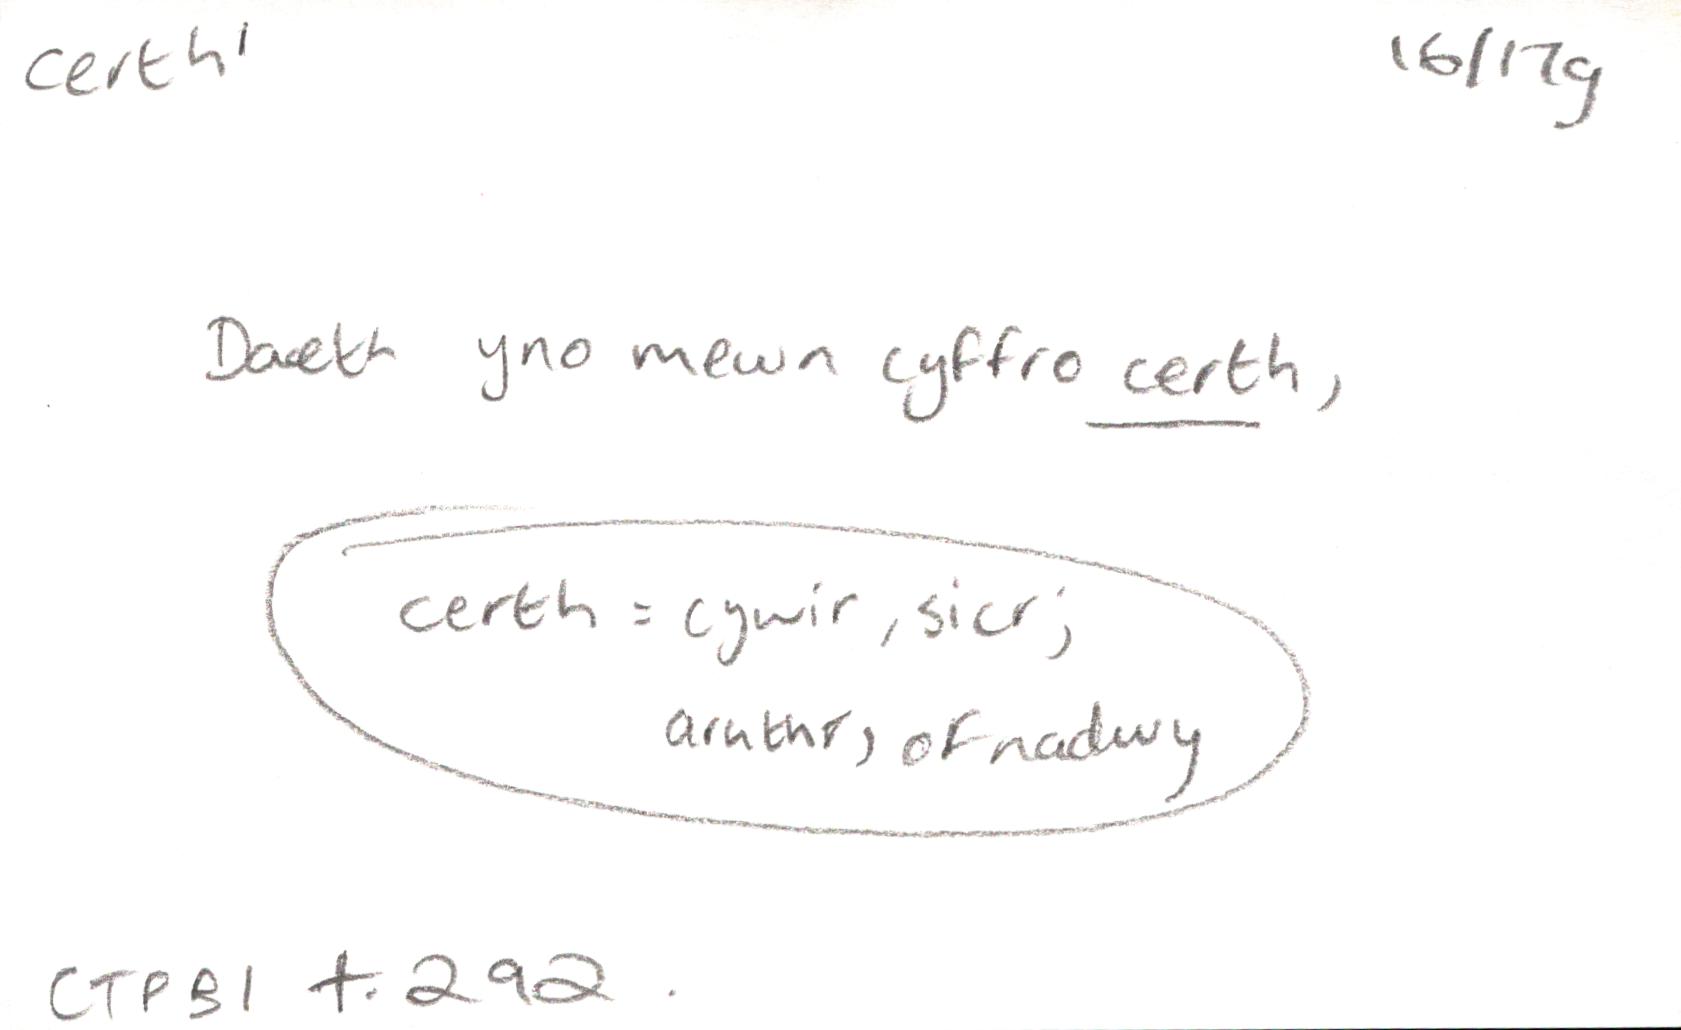 certh¹ 16/17g
Daeth yno mewn cyffro certh,
certh = cywir, sicr;
aruthr, ofnadwy
CTPB1 t. 292.